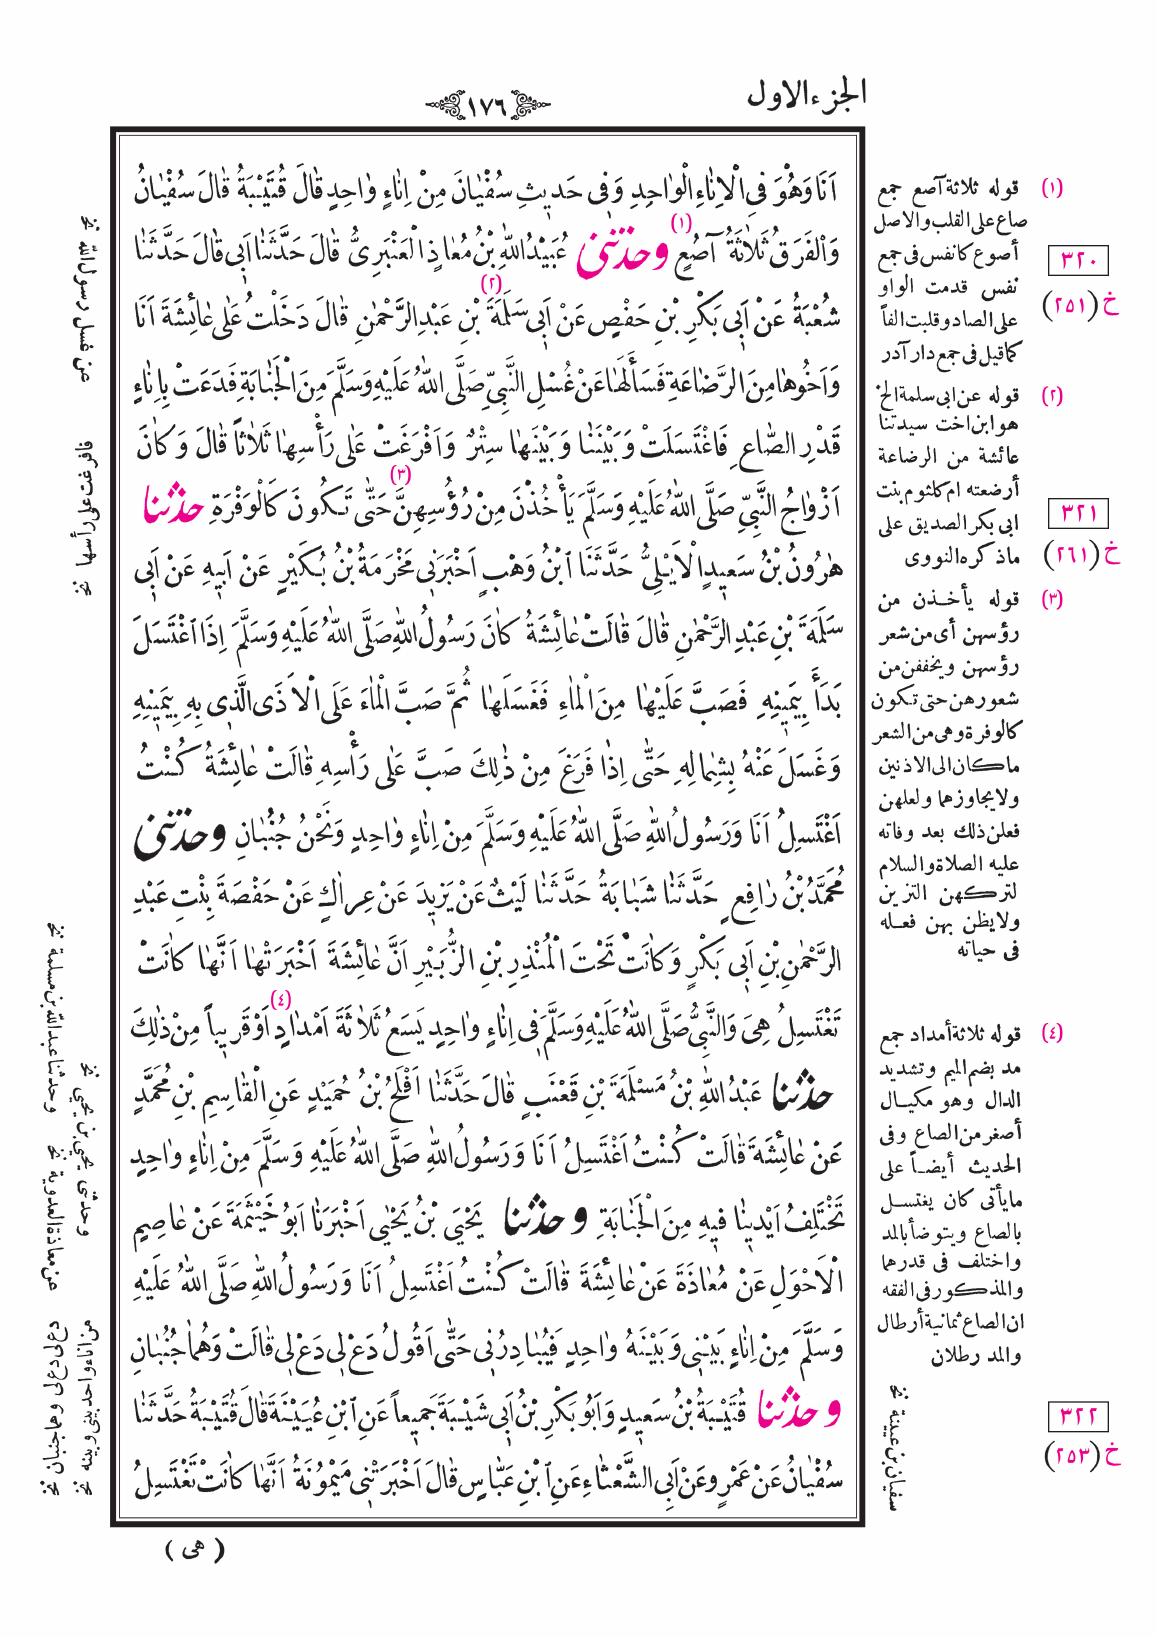 الجزء الاول
١٧٦
اَنَا وَهُوَ فِى الْاِنَاءِ الْوَاحِدِ وَفِى حَدِيثِ سُفْيَانَ مِنْ اِنَاءٍ وَاحِدٍ قَالَ قُتَيْبَةُ قَالَ سُفْيَانُ
وَالْفَرَقُ ثَلَاثَةُ آصُعٍ (١) وحدثنى عُبَيْدُ اللّٰهِ بْنُ مُعَاذٍ الْعَنْبَرِىُّ قَالَ حَدَّثَنَا اَبِى قَالَ حَدَّثَنَا
شُعْبَةُ عَنْ اَبِى بَكْرِ بْنِ حَفْصٍ عَنْ اَبِى سَلَمَةَ (٢) بْنِ عَبْدِ الرَّحْمٰنِ قَالَ دَخَلْتُ عَلَى عَائِشَةَ اَنَا
وَاَخُوهَا مِنَ الرَّضَاعَةِ فَسَأَلَهَا عَنْ غُسْلِ النَّبِىِّ صَلَّى اللّٰهُ عَلَيْهِ وَسَلَّمَ مِنَ الْجَنَابَةِ فَدَعَتْ بِاِنَاءٍ
قَدْرِ الصَّاعِ فَاغْتَسَلَتْ وَبَيْنَنَا وَبَيْنَهَا سِتْرٌ وَاَفْرَغَتْ عَلَى رَأْسِهَا ثَلَاثاً قَالَ وَكَانَ
اَزْوَاجُ النَّبِىِّ صَلَّى اللّٰهُ عَلَيْهِ وَسَلَّمَ يَأْخُذْنَ مِنْ رُؤُسِهِنَّ (٣) حَتّٰى تَكُونَ كَالْوَفْرَةِ حدثنا
هٰرُونُ بْنُ سَعِيدٍ الْاَيْلِىُّ حَدَّثَنَا ابْنُ وَهْبٍ اَخْبَرَنِى مَخْرَمَةُ بْنُ بُكَيْرٍ عَنْ اَبِيهِ عَنْ اَبِى
سَلَمَةَ بْنِ عَبْدِ الرَّحْمٰنِ قَالَ قَالَتْ عَائِشَةُ كَانَ رَسُولُ اللّٰهِ صَلَّى اللّٰهُ عَلَيْهِ وَسَلَّمَ اِذَا اغْتَسَلَ
بَدَأَ بِيَمِينِهِ فَصَبَّ عَلَيْهَا مِنَ الْمَاءِ فَغَسَلَهَا ثُمَّ صَبَّ الْمَاءَ عَلَى الْاَذَى الَّذِى بِهِ بِيَمِينِهِ
وَغَسَلَ عَنْهُ بِشِمَالِهِ حَتّٰى اِذَا فَرَغَ مِنْ ذٰلِكَ صَبَّ عَلَى رَأْسِهِ قَالَتْ عَائِشَةُ كُنْتُ
اَغْتَسِلُ اَنَا وَرَسُولُ اللّٰهِ صَلَّى اللّٰهُ عَلَيْهِ وَسَلَّمَ مِنْ اِنَاءٍ وَاحِدٍ وَنَحْنُ جُنُبَانِ وحدثنى
مُحَمَّدُ بْنُ رَافِعٍ حَدَّثَنَا شَبَابَةُ حَدَّثَنَا لَيْثٌ عَنْ يَزِيدَ عَنْ عِرَاكٍ عَنْ حَفْصَةَ بِنْتِ عَبْدِ
الرَّحْمٰنِ بْنِ اَبِى بَكْرٍ وَكَانَتْ تَحْتَ الْمُنْذِرِ بْنِ الزُّبَيْرِ اَنَّ عَائِشَةَ اَخْبَرَتْهَا اَنَّهَا كَانَتْ
تَغْتَسِلُ هِىَ وَالنَّبِىُّ صَلَّى اللّٰهُ عَلَيْهِ وَسَلَّمَ فِى اِنَاءٍ وَاحِدٍ يَسَعُ ثَلَاثَةَ اَمْدَادٍ (٤) اَوْ قَرِيباً مِنْ ذٰلِكَ
حدثنا عَبْدُ اللّٰهِ بْنُ مَسْلَمَةَ بْنِ قَعْنَبٍ قَالَ حَدَّثَنَا اَفْلَحُ بْنُ حُمَيْدٍ عَنِ الْقَاسِمِ بْنِ مُحَمَّدٍ
عَنْ عَائِشَةَ قَالَتْ كُنْتُ اَغْتَسِلُ اَنَا وَرَسُولُ اللّٰهِ صَلَّى اللّٰهُ عَلَيْهِ وَسَلَّمَ مِنْ اِنَاءٍ وَاحِدٍ
تَخْتَلِفُ اَيْدِينَا فِيهِ مِنَ الْجَنَابَةِ وحدثنا يَحْيَى بْنُ يَحْيٰى اَخْبَرَنَا اَبُو خَيْثَمَةَ عَنْ عَاصِمٍ
الْاَحْوَلِ عَنْ مُعَاذَةَ عَنْ عَائِشَةَ قَالَتْ كُنْتُ اَغْتَسِلُ اَنَا وَرَسُولُ اللّٰهِ صَلَّى اللّٰهُ عَلَيْهِ
وَسَلَّمَ مِنْ اِنَاءٍ بَيْنِى وَبَيْنَهُ وَاحِدٍ فَيُبَادِرُنِى حَتّٰى اَقُولُ دَعْ لِى دَعْ لِى قَالَتْ وَهُمَا جُنُبَانِ
وحدثنا قُتَيْبَةُ بْنُ سَعِيدٍ وَاَبُو بَكْرِ بْنُ اَبِى شَيْبَةَ جَمِيعاً عَنِ ابْنِ عُيَيْنَةَ قَالَ قُتَيْبَةُ حَدَّثَنَا
سُفْيَانُ عَنْ عَمْرٍو عَنْ اَبِى الشَّعْثَاءِ عَنِ ابْنِ عَبَّاسٍ قَالَ اَخْبَرَتْنِى مَيْمُونَةُ اَنَّهَا كَانَتْ تَغْتَسِلُ
( هى )
(١) قوله ثلاثة آصع جمع
صاع على القلب والاصل
أصوع كانفس فى جمع
نفس قدمت الواو
على الصاد وقلبت الفاً
كما قيل فى جمع دار آدر
(٢) قوله عن ابى سلمة الخ
هو ابن اخت سيدتنا
عائشة من الرضاعة
أرضعته ام كلثوم بنت
ابى بكر الصديق على
ماذكره النووى
(٣) قوله يأخذن من
رؤسهن أى من شعر
رؤسهن ويخففن من
شعورهن حتى تكون
كالوفرة وهى من الشعر
ماكان الى الاذنين
ولايجاوزهما ولعلهن
فعلن ذلك بعد وفاته
عليه الصلاة والسلام
لتركهن التزين
ولايظن بهن فعله
فى حياته
(٤) قوله ثلاثة أمداد جمع
مد بضم الميم وتشديد
الدال وهو مكيال
أصغر من الصاع وفى
الحديث أيضاً على
مايأتى كان يغتسل
بالصاع ويتوضأ بالمد
واختلف فى قدرهما
والمذكور فى الفقه
ان الصاع ثمانية أرطال
والمد رطلان
٣٢٠
خ (٢٥١)
٣٢١
خ (٢٦١)
٣٢٢
خ (٢٥٣)
سفيان بن عيينة نخ
عن غسل رسول الله نخ
فافرغت على رأسها نخ
وحدثنا عبد الله بن مسلمة نخ
وحدثنى يحيى بن يحيى نخ
عن معاذة العدوية نخ
من اناء واحد بينى وبينه نخ
دع لى دع لى وهما جنبان نخ